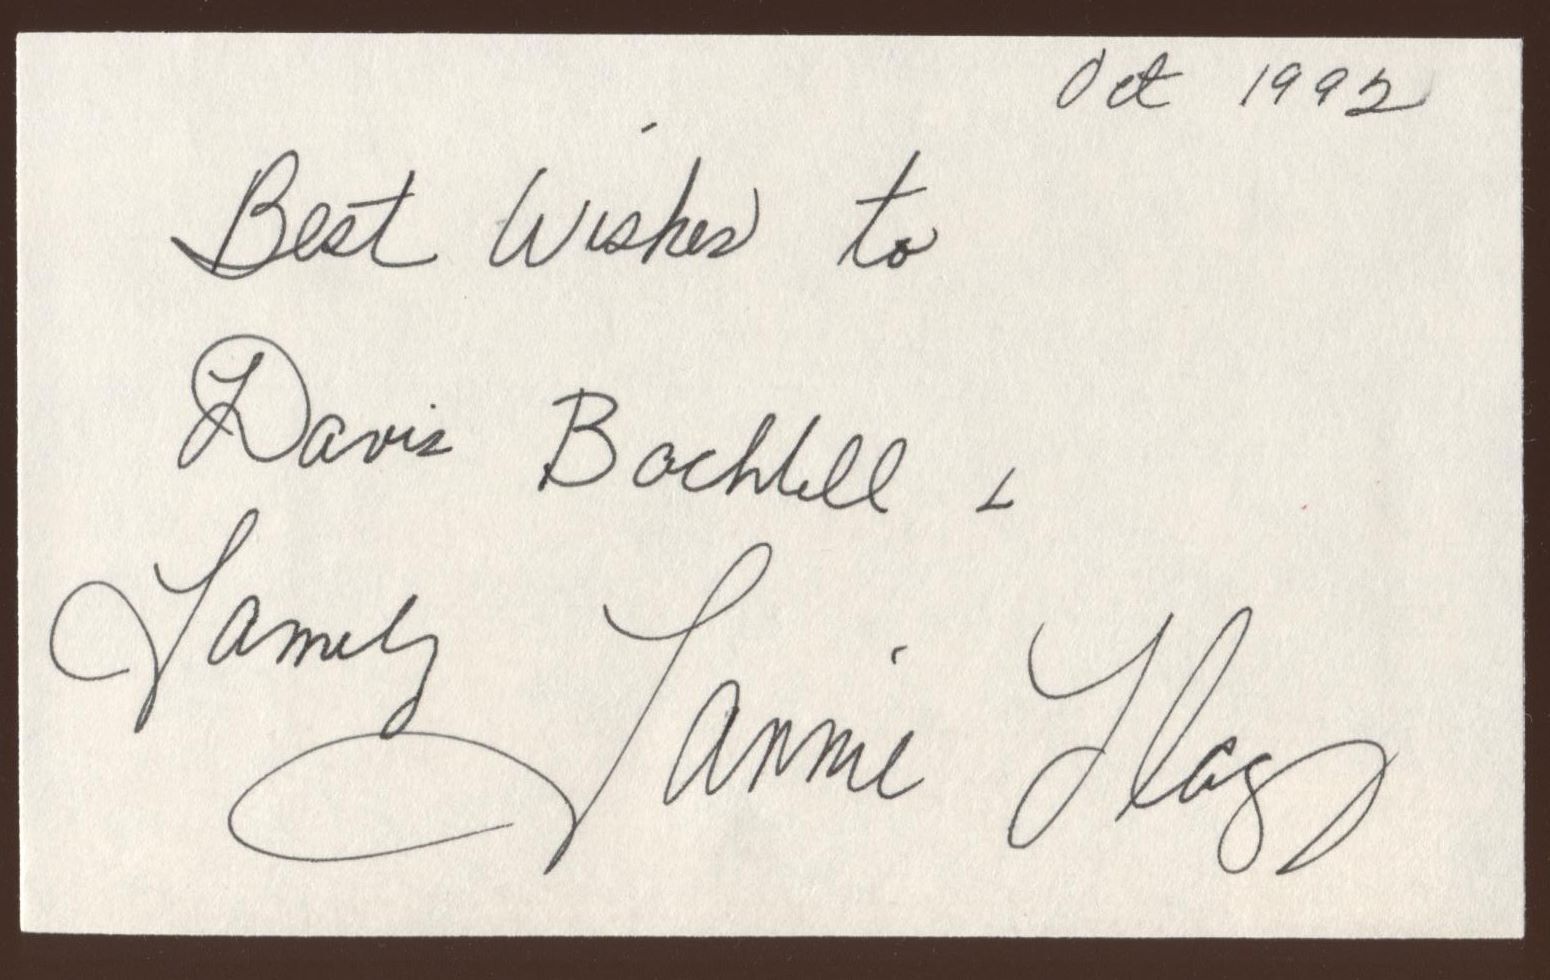 Oct 1992
Best Wishes to
Davis Bochbell &
Family Fannie Flagg